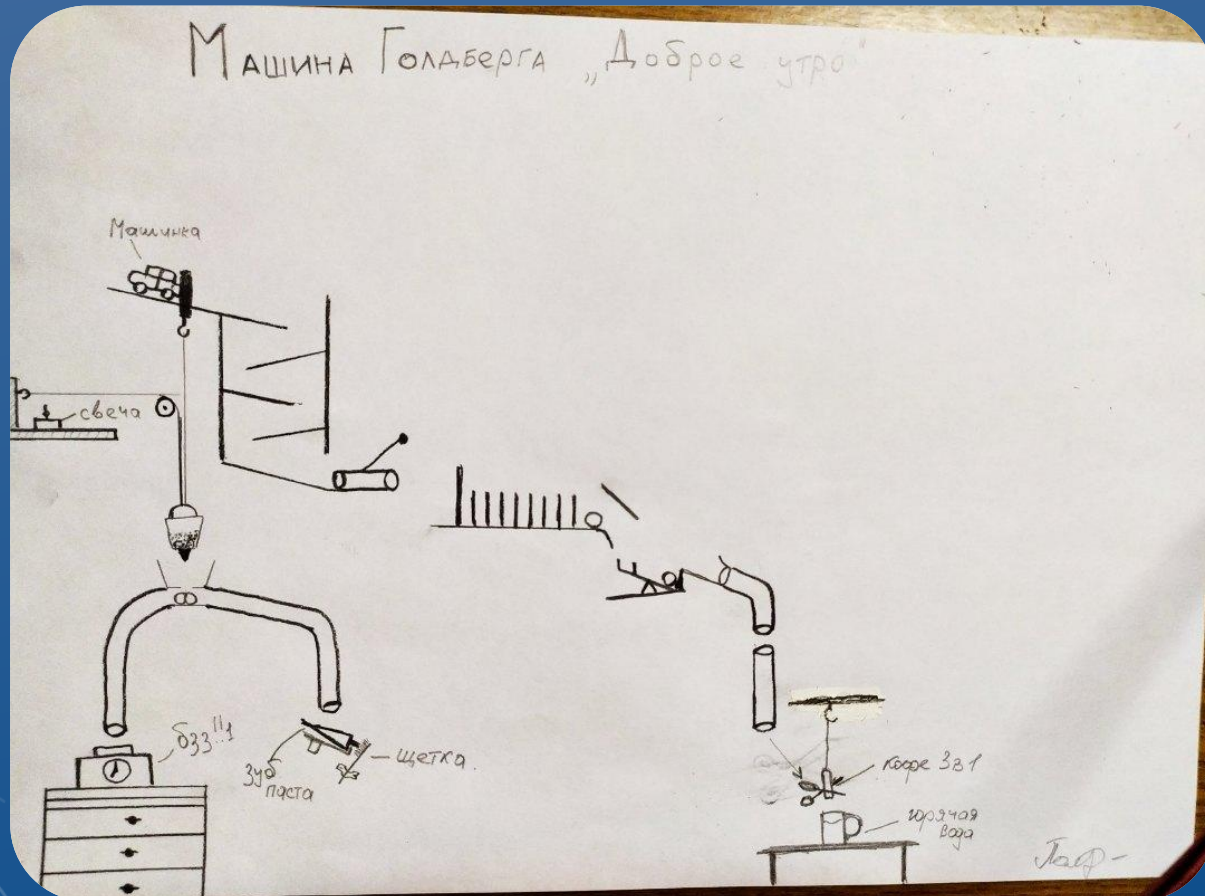 Машина Голдберга „Доброе утро"
Машинка
свеча
бзз!!1
Зуб
паста
щетка
кофе 3в1
горячая
вода